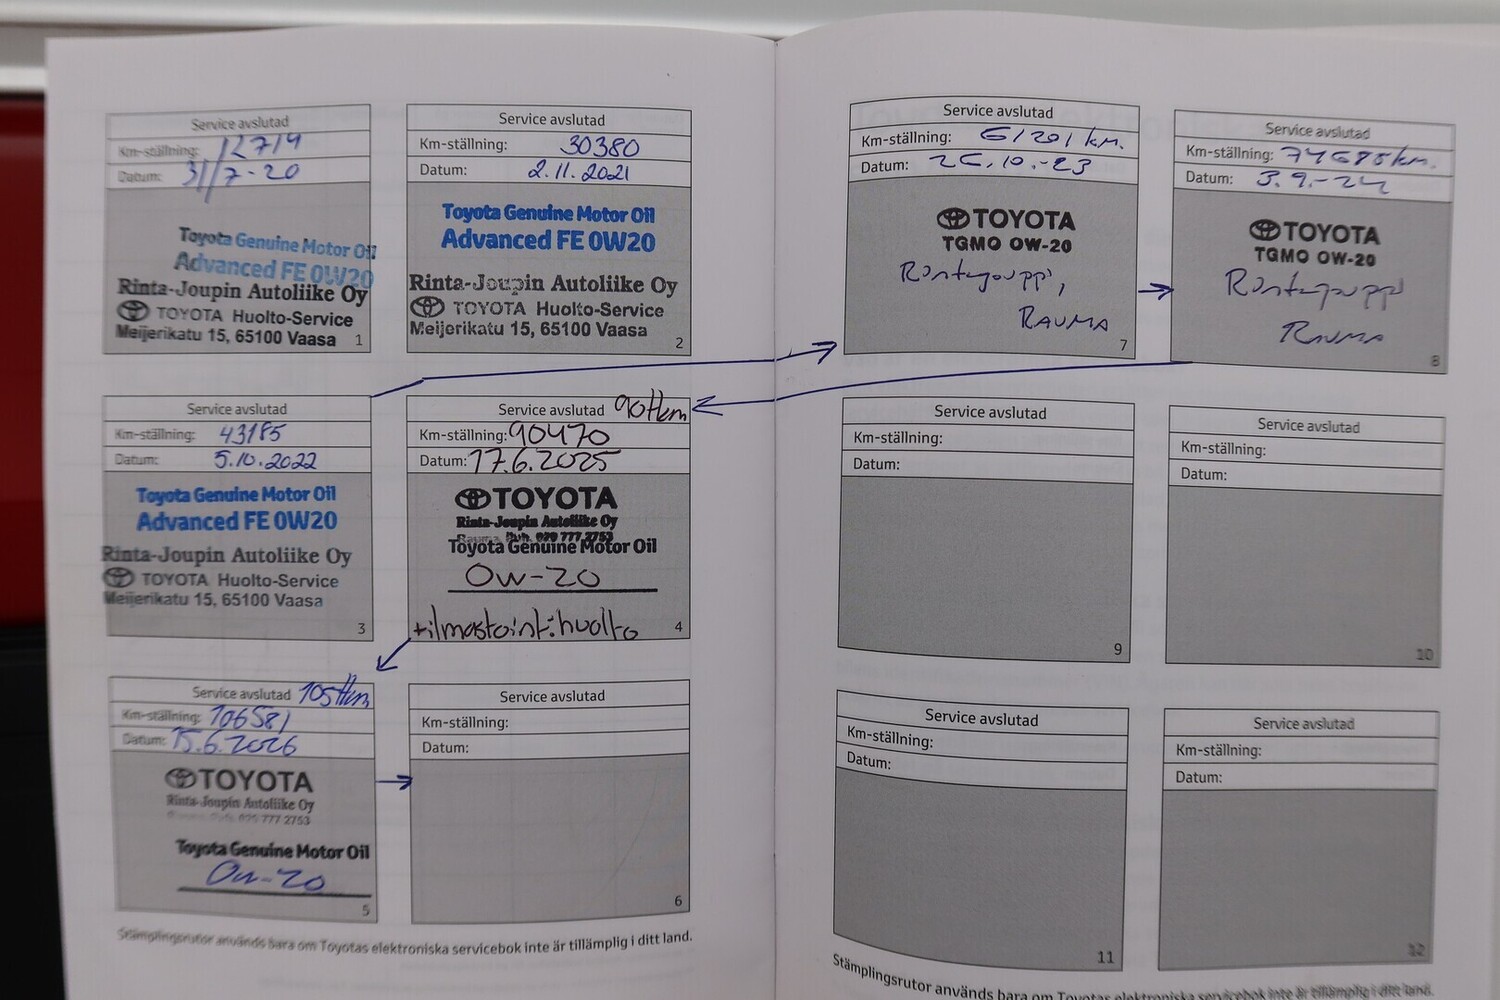 Service avslutad
Km-ställning: 12719
Datum: 31/7-20
Toyota Genuine Motor Oil
Advanced FE 0W20
Rinta-Joupin Autoliike Oy
TOYOTA Huolto-Service
Meijerikatu 15, 65100 Vaasa
1
Service avslutad
Km-ställning: 30380
Datum: 2.11.2021
Toyota Genuine Motor Oil
Advanced FE 0W20
Rinta-Joupin Autoliike Oy
TOYOTA Huolto-Service
Meijerikatu 15, 65100 Vaasa
2
Service avslutad
Km-ställning: 43185
Datum: 5.10.2022
Toyota Genuine Motor Oil
Advanced FE 0W20
Rinta-Joupin Autoliike Oy
TOYOTA Huolto-Service
Meijerikatu 15, 65100 Vaasa
3
Service avslutad 90tkm
Km-ställning: 90470
Datum: 17.6.2025
TOYOTA
Rinta-Joupin Autoliike Oy
Rauma, Puh. 029 777 2753
Toyota Genuine Motor Oil
0w-20
+ilmastointihuolto
4
Service avslutad 105tkm
Km-ställning: 106581
Datum: 15.6.2026
TOYOTA
Rinta-Joupin Autoliike Oy
029 777 2753
Toyota Genuine Motor Oil
0w-20
5
Service avslutad
Km-ställning:
Datum:
6
Stämplingsrutor används bara om Toyotas elektroniska servicebok inte är tillämplig i ditt land.
Service avslutad
Km-ställning: 61201 km.
Datum: 26.10.-23
TOYOTA
TGMO 0W-20
Rintajouppi,
RAUMA
7
Service avslutad
Km-ställning: 74685 km.
Datum: 3.9.-24
TOYOTA
TGMO 0W-20
Rintajouppi
RAUMA
8
Service avslutad
Km-ställning:
Datum:
9
Service avslutad
Km-ställning:
Datum:
10
Service avslutad
Km-ställning:
Datum:
11
Service avslutad
Km-ställning:
Datum:
12
Stämplingsrutor används bara om Toyotas elektroniska servicebok inte är tillämplig i ditt land.